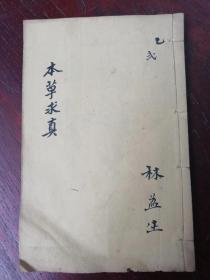 乙
弎
本草求真
林益生